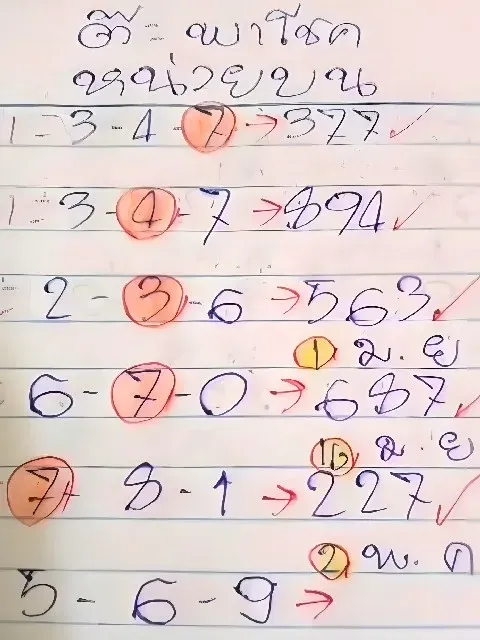 ตี๋ - พาโชค
หน่วยบน
1 - 3 - 4 7 → 377 ✓
1 - 3 - 4 - 7 → 894 ✓
2 - 3 - 6 → 563 ✓
1 เม.ย
6 - 7 - 0 → 687 ✓
16 เม.ย
7 8 - 1 → 227 ✓
2 พ.ค
5 - 6 - 9 →